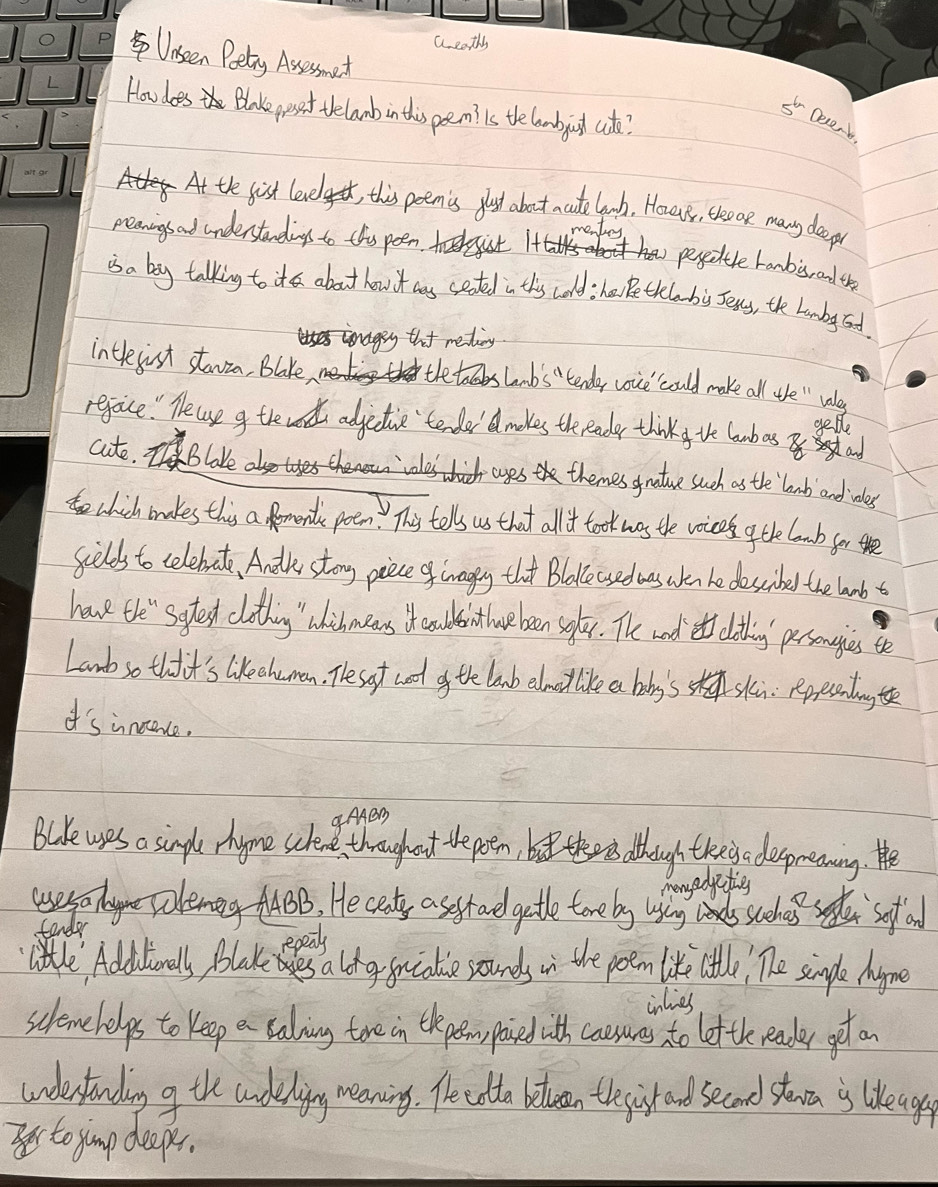 Unseen Poetry Assessment
5th Decemb
How does Blake present the lamb in this poem? Is the lamb just cute?
At the first level, this poem is just about a cute lamb. However, there are many deeper
meanings and understandings to this poem. It mentions perfect the Lamb is and the
is a boy talking to it about how it was created in this world: how the lamb is Jesus, the Lamb of God.
in the first stanza, Blake, the Lamb's "tender voice" could make all the "vales
rejoice." The use of the adjective 'tender' makes the reader think of the lamb as gentle and
cute. Blake uses themes of nature such as the 'lamb' and 'vales'
which makes this a Romantic poem. This tells us that all it took was the voice of the lamb for
fields to celebrate. Another strong piece of imagery that Blake used was when he described the lamb to
have the "softest clothing" which means it couldn't have been softer. The word 'clothing' personifies the
Lamb so that it's like a human. The soft wool of the lamb almost like a baby's skin: representing
it's innocence.
Blake uses a simple rhyme scheme of AABB throughout the poem, although there is a deep meaning.
He creates a soft and gentle tone by using many adjectives such as 'soft' and
'tender'. Additionally, Blake repeats a lot of fricative sounds in the poem like 'little'. The simple rhyme
scheme helps to keep a calming tone in the poem, paired with caesuras in lines to let the reader get an
understanding of the underlying meaning. The volta between the first and second stanza is like a gap
to jump deeper.